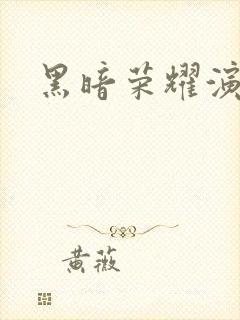 黑暗荣耀演
黄薇